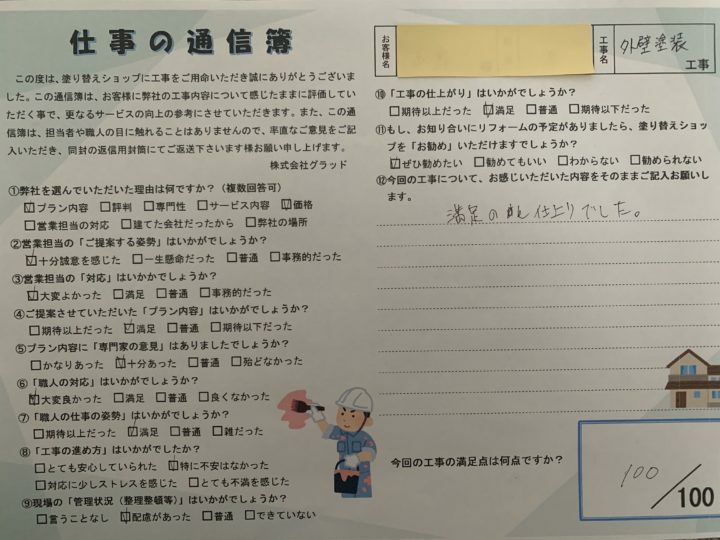 仕事の通信簿
この度は、塗り替えショップに工事をご用命いただき誠にありがとうございま
した。この通信簿は、お客様に弊社の工事内容について感じたままに評価してい
ただく事で、更なるサービスの向上の参考にさせていただきます。また、この通
信簿は、担当者や職人の目に触れることはありませんので、率直なご意見をご記
入いただき、同封の返信用封筒にてご返送下さいます様お願い申し上げます。
株式会社グラッド
①弊社を選んでいただいた理由は何ですか？（複数回答可）
☑プラン内容 □評判 □専門性 □サービス内容 ☑価格
□営業担当の対応 □建てた会社だったから □弊社の場所
②営業担当の「ご提案する姿勢」はいかがでしょうか？
☑十分誠意を感じた □一生懸命だった □普通 □事務的だった
③営業担当の「対応」はいかかでしょうか？
☑大変よかった □満足 □普通 □事務的だった
④ご提案させていただいた「プラン内容」はいかがでしょうか？
□期待以上だった ☑満足 □普通 □期待以下だった
⑤プラン内容に「専門家の意見」はありましたでしょうか？
□かなりあった ☑十分あった □普通 □殆どなかった
⑥「職人の対応」はいかがでしょうか？
☑大変良かった □満足 □普通 □良くなかった
⑦「職人の仕事の姿勢」はいかがでしょうか？
□期待以上だった ☑満足 □普通 □雑だった
⑧「工事の進め方」はいかがでしたか？
□とても安心していられた ☑特に不安はなかった
□対応に少しストレスを感じた □とても不満を感じた
⑨現場の「管理状況（整理整頓等）」はいかがでしょうか？
□言うことなし ☑配慮があった □普通 □できていない
お客様名
工事名
外壁塗装
工事
⑩「工事の仕上がり」はいかがでしょうか？
□期待以上だった ☑満足 □普通 □期待以下だった
⑪もし、お知り合いにリフォームの予定がありましたら、塗り替えショッ
プを「お勧め」いただけますでしょうか？
☑ぜひ勧めたい □勧めてもいい □わからない □勧められない
⑫今回の工事について、お感じいただいた内容をそのままご記入お願いし
ます。
満足の 仕上りでした。
今回の工事の満足点は何点ですか？
100/100